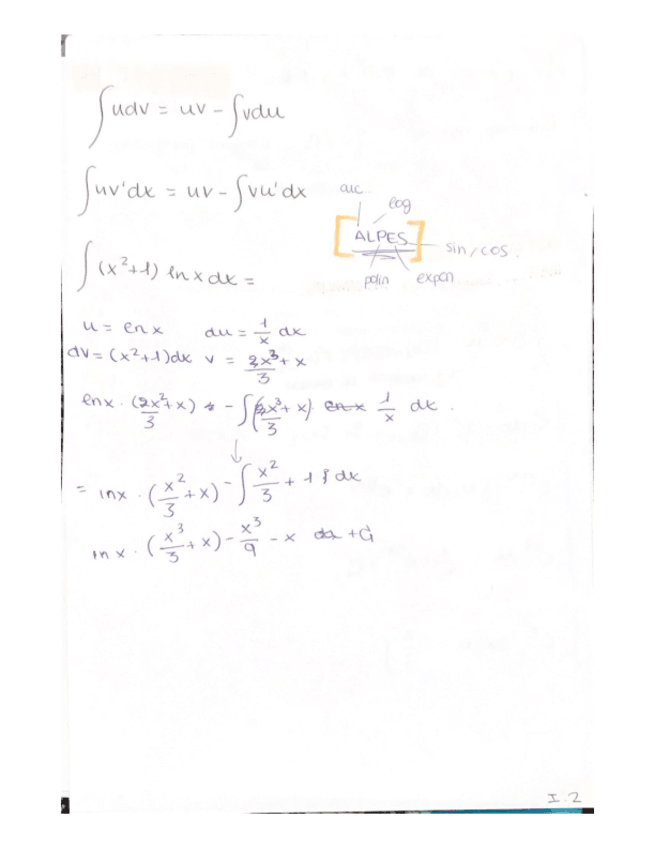 ∫udv = uv - ∫vdu
∫uv'dx = uv - ∫vu'dx
arc
log
[ALPES]
sin/cos.
polin
expon
∫(x²+1) ln x dx =
u = ln x    du = 1/x dx
dv = (x²+1)dx    v = x³/3 + x
ln x · (x²/3 + x) - ∫(x³/3 + x) 1/x dx.
↓
= ln x · (x²/3 + x) - ∫ x²/3 + 1 dx
ln x · (x³/3 + x) - x³/9 - x + C
I.2